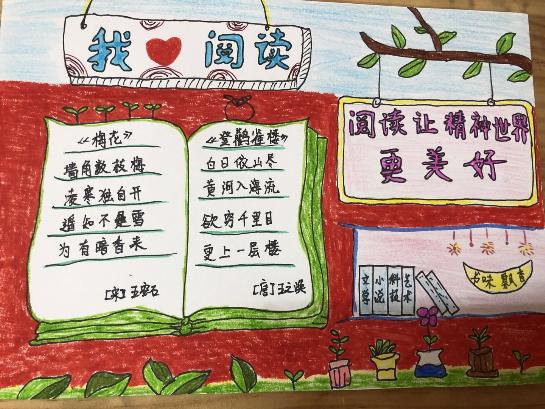 我 阅读
《梅花》
墙角数枝梅
凌寒独自开
遥知不是雪
为有暗香来
[宋]王安石
《登鹳雀楼》
白日依山尽
黄河入海流
欲穷千里目
更上一层楼
[唐]王之涣
阅读让精神世界
更美好
书味飘香
文学
小说
科技
艺术